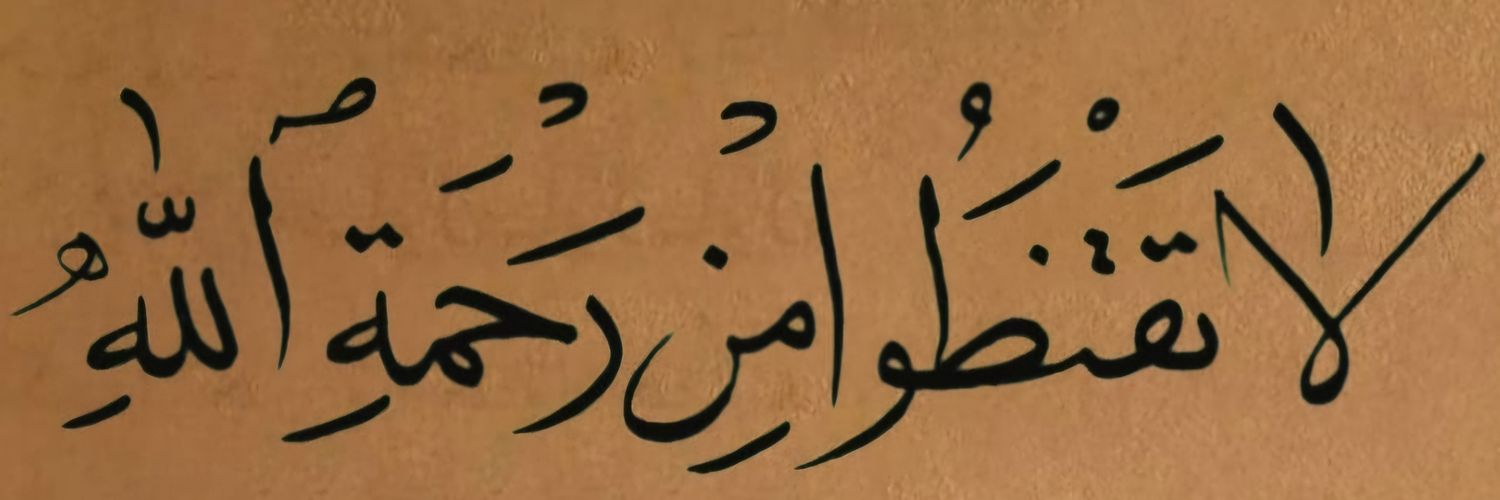 لَا تَقْنَطُوا مِنْ رَحْمَةِ ٱللَّهِ